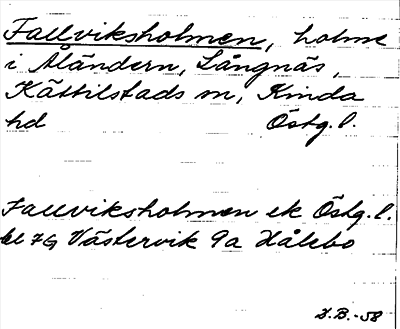 Fallviksholmen, holme
i Åländern, Långnäs,
Kättilstads sn, Kinda
hd Östg. l.
Fallviksholmen ek Östg. l.
bl 7G Västervik 9a Hålebo
H.B.-58